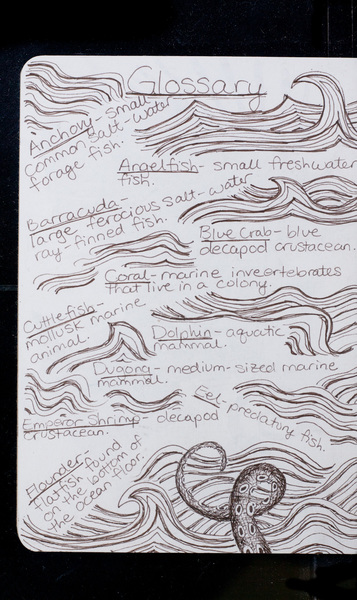 Glossary
Anchovy - small
common salt-water
forage fish.
Angelfish - small freshwater
fish.
Barracuda -
large ferocious salt-water
ray-finned fish.
Blue Crab - blue
decapod crustacean.
Coral - marine invertebrates
that live in a colony.
Cuttlefish -
mollusk marine
animal.
Dolphin - aquatic
mammal.
Dugong - medium-sized marine
mammal.
Eel - predatory fish.
Emperor Shrimp - decapod
crustacean.
Flounder -
flatfish found
on the bottom of
the ocean floor.